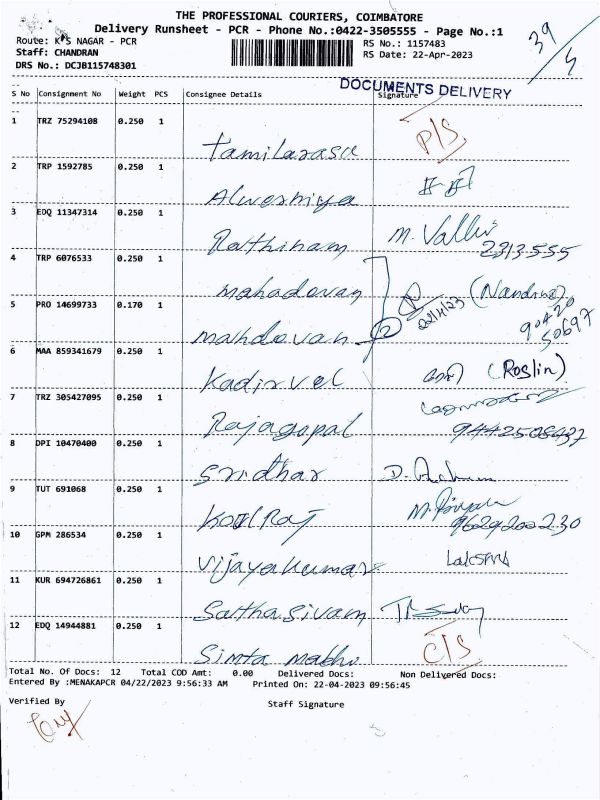 THE PROFESSIONAL COURIERS, COIMBATORE
Delivery Runsheet - PCR - Phone No.:0422-3505555 - Page No.:1
Route: K S NAGAR - PCR
RS No.: 1157483
Staff: CHANDRAN
RS Date: 22-Apr-2023
DRS No.: DCJB115748301
39/5
DOCUMENTS DELIVERY
S No Consignment No Weight PCS Consignee Details Signature
1 TRZ 75294108 0.250 1
Tamilarasu P/S
2 TRP 1592785 0.250 1
3 EDQ 11347314 0.250 1
Rathinam M. Valli 2313555
4 TRP 6076533 0.250 1
mahadevan
22/4/23
5 PRO 14699733 0.170 1
90420
50697
6 MAA 859341679 0.250 1
Kadirvel (Roslin)
7 TRZ 305427095 0.250 1
Rajagopal
8 DPI 10470400 0.250 1
Sridhar D.
9 TUT 691068 0.250 1
M. Priya
9629200230
10 GPM 286534 0.250 1
Vijayakumar
11 KUR 694726861 0.250 1
Sathasivam
12 EDQ 14944881 0.250 1
C/S
Total No. Of Docs: 12 Total COD Amt: 0.00 Delivered Docs: Non Delivered Docs:
Entered By :MENAKAPCR 04/22/2023 9:56:33 AM Printed On: 22-04-2023 09:56:45
Verified By
Staff Signature